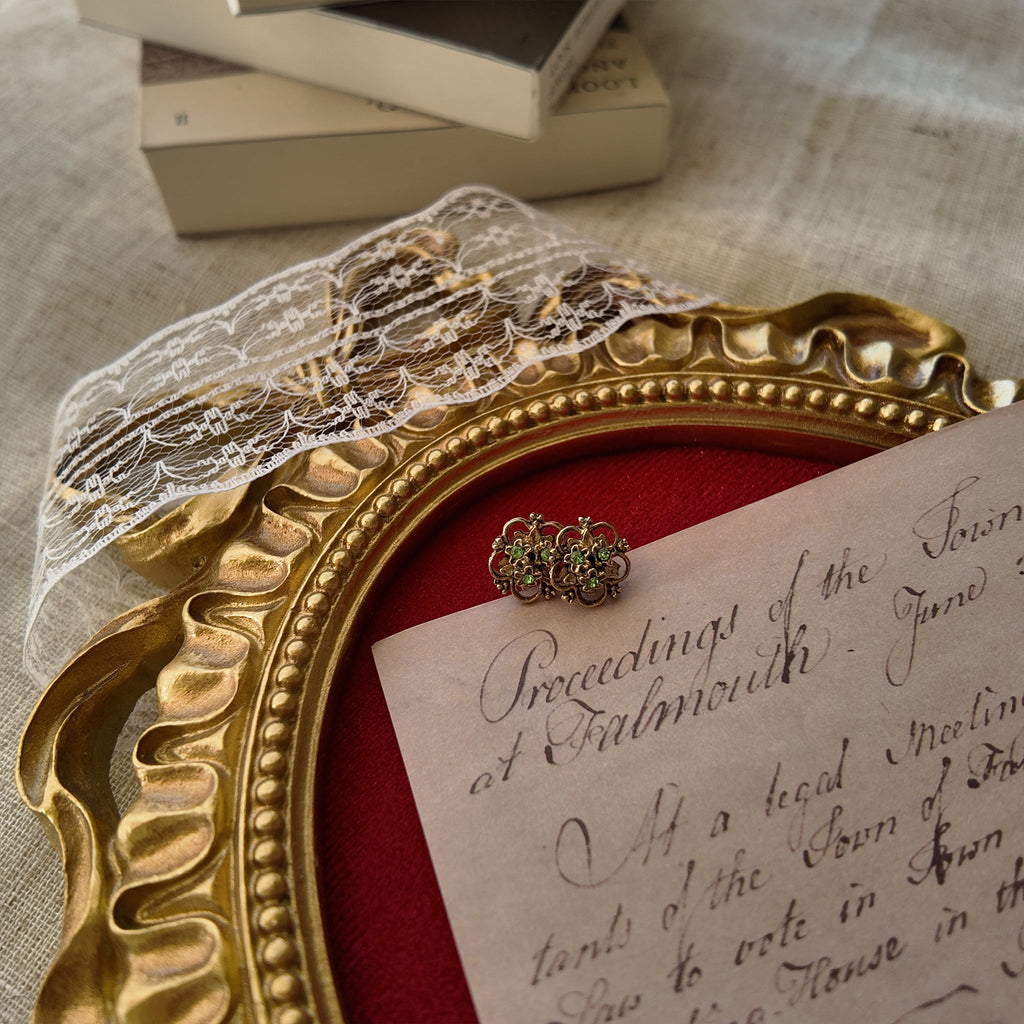 LOOK
AN
Proceedings of the Town
at Falmouth. June
At a legal Meeting
tants of the Town of Fa
Law to vote in Town
House in th